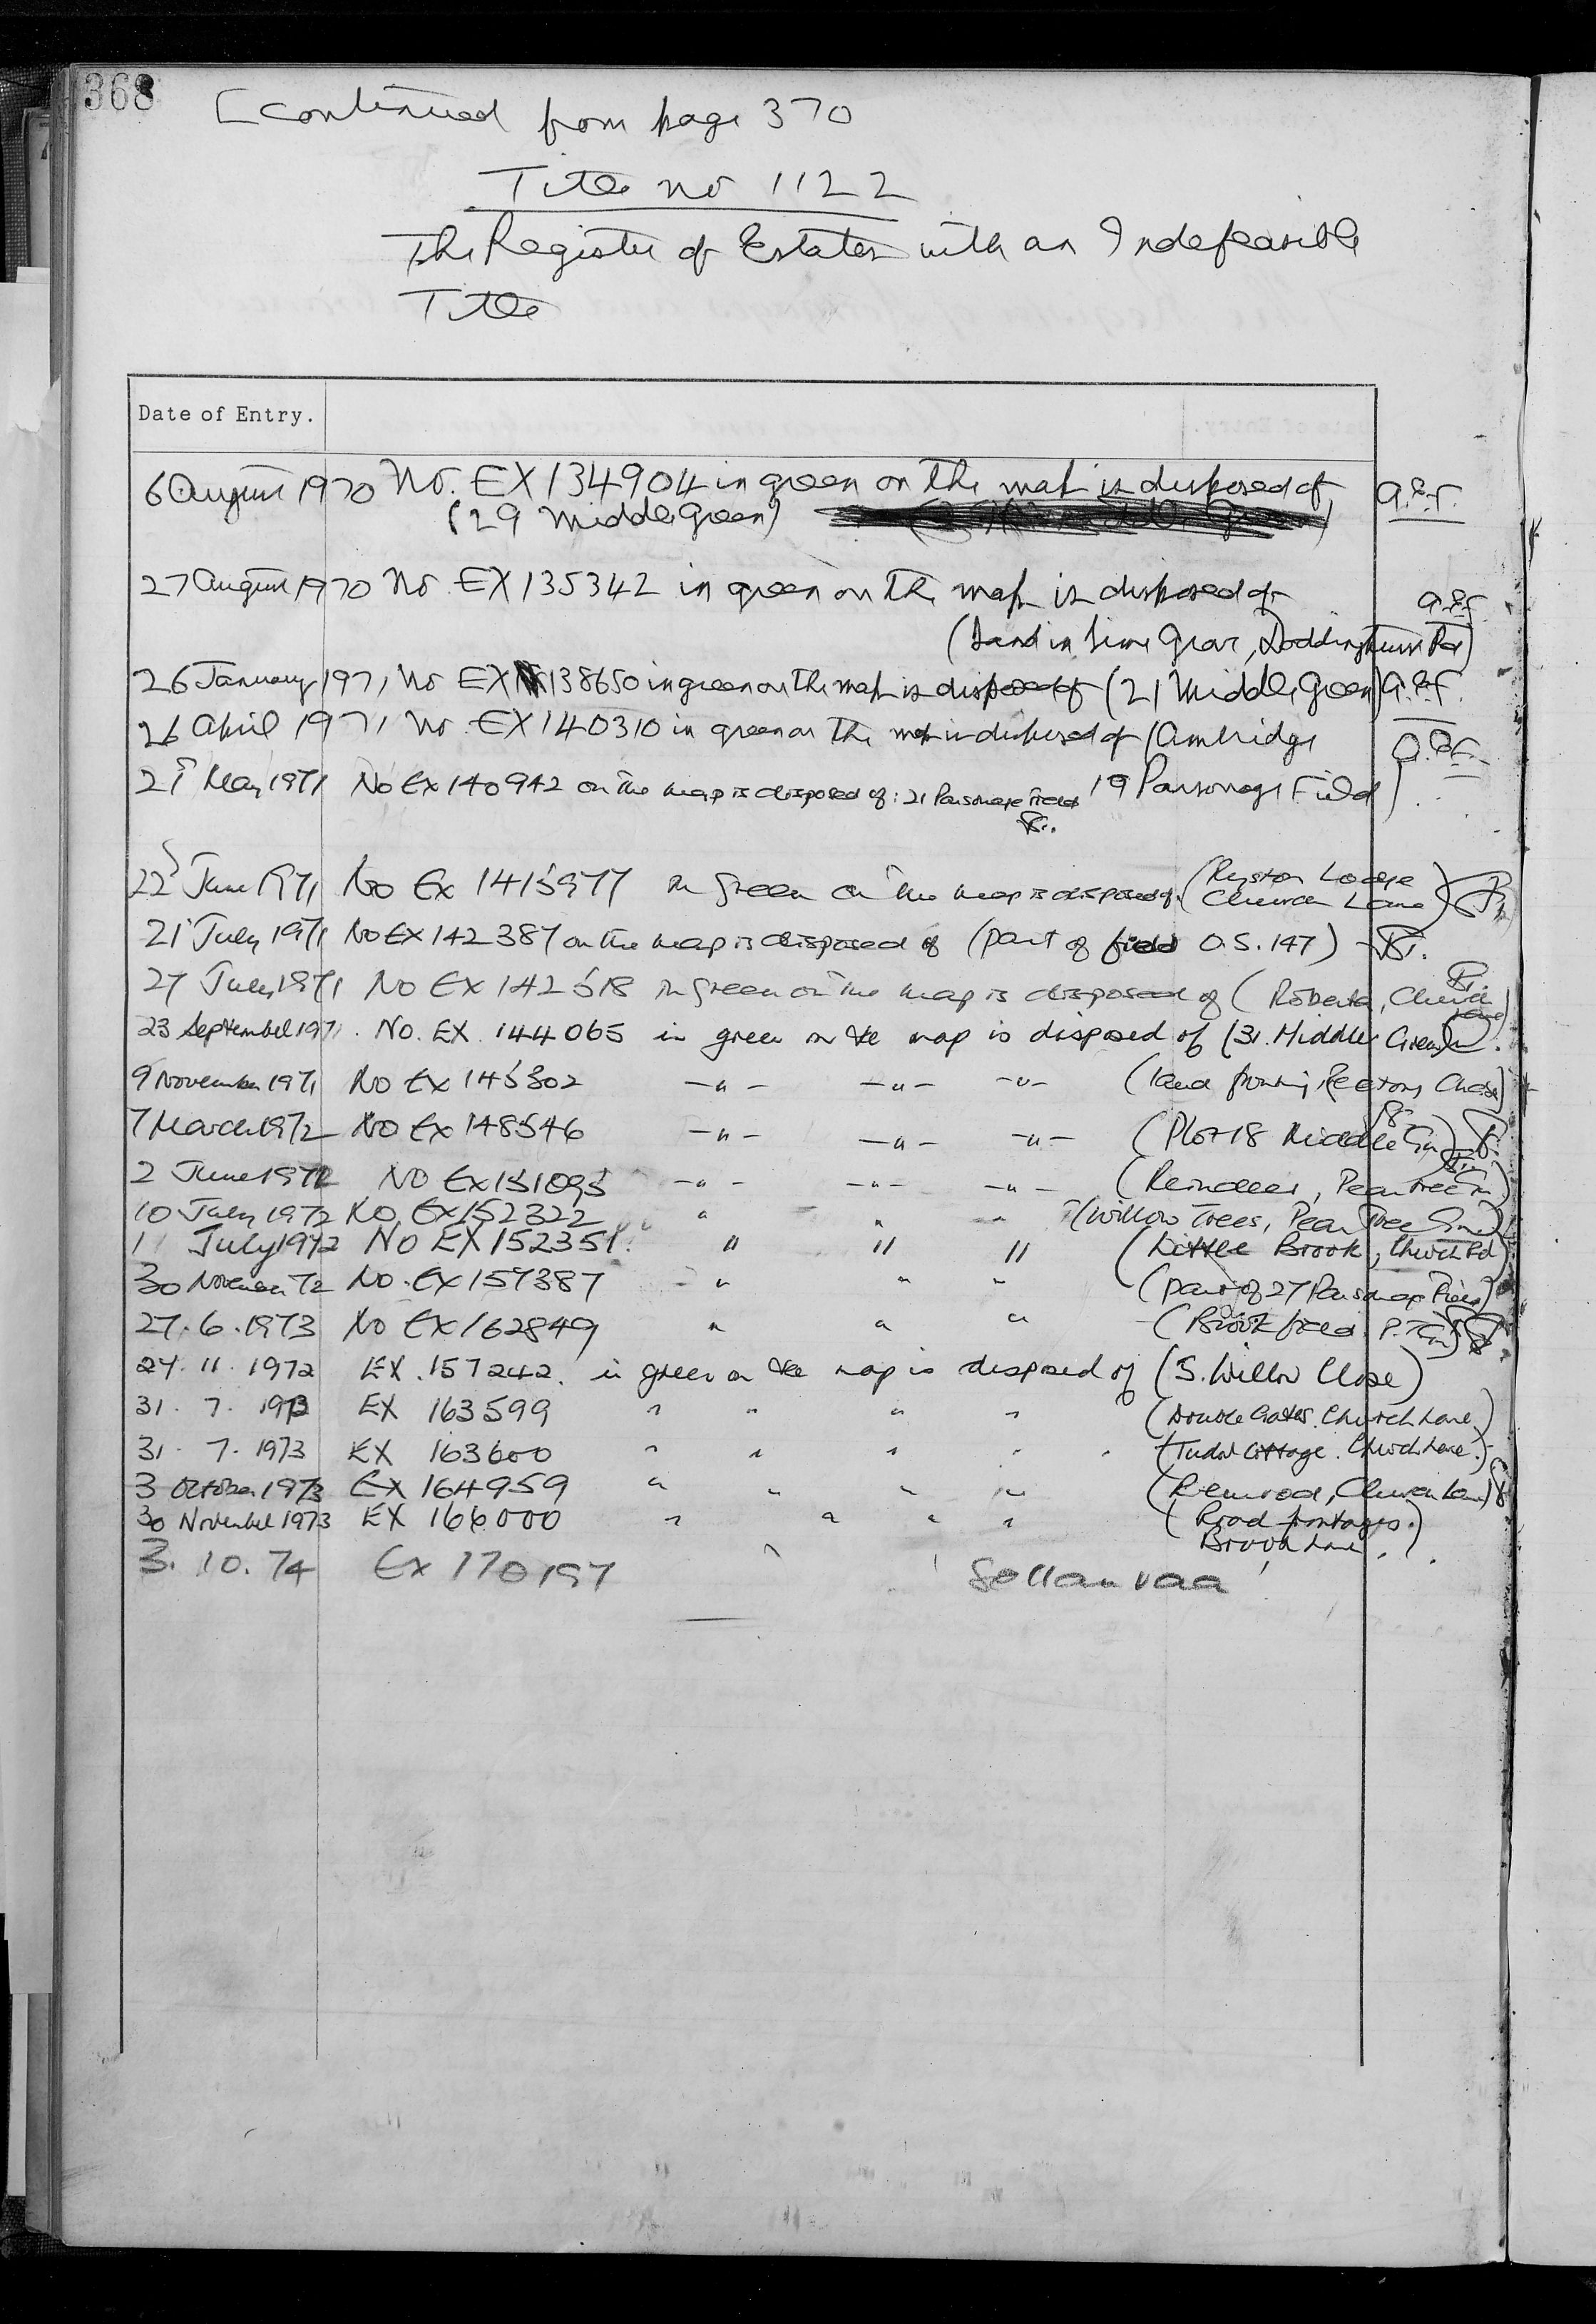 368
[Continued from page 370
Title no 1122
The Register of Estates with an Indefeasible
Title
Date of Entry.
6 August 1970 No. EX 134904 in green on the map is disposed of a.e.f.
(29 Middle Green)
27 August 1970 No EX 135342 in green on the map is disposed of a.e.f.
(Land in Lime Grove, Doddinghurst Rd)
26 January 1971 No EX 138650 in green on the map is disposed of (21 Middle Green) a.e.f.
26 April 1971 No. EX 140310 in green on the map is disposed of (Ambridge a.e.f.
21 May 1971 No Ex 140942 on the map is disposed of: 21 Parsonage Field 19 Parsonage Field)
22 June 1971 No Ex 1415977 in green on the map is disposed of (Ryston Lodge
Church Lane)
21 July 1971 No EX 142387 on the map is disposed of (part of field O.S. 147)
27 July 1971 No EX 142518 in green on the map is disposed of (Roberta, Church
Lane)
23 September 1971. No. EX. 144065 in green on the map is disposed of (31. Middle Green)
9 November 1971 No Ex 145302 -"- -"- -"- (land fronting Rectory Chase)
7 March 1972 No Ex 148546 -"- -"- -"- (Plot 18 Middle Gn)
2 June 1972 NO Ex 151095 -"- -"- -"- (Reindeer, Pear Tree Gn)
10 July 1972 No Ex 152322 " " " (Willow Trees, Pear Tree Gn)
11 July 1972 No EX 152351. " " " (Little Brook, Church Rd)
30 November 72 No. Ex 157387 " " " (part of 27 Parsonage Field)
27.6.1973 No Ex 162849 " " " (Brookfield P.T.Gn)
24.11.1972 EX.157242. in green on the map is disposed of (5. Willow Close)
31.7.1973 EX 163599 " " " " (Double Gates. Church Lane.)
31.7.1973 EX 163600 " " " " (Tudor Cottage. Church Lane.)
3 October 1973 Ex 164959 " " " " (Remrod, Church Lane)
30 November 1973 EX 166000 " " " " (Road frontages.
Brook Lane.)
3.10.74 Ex 170197 " 'Sollanvaa'